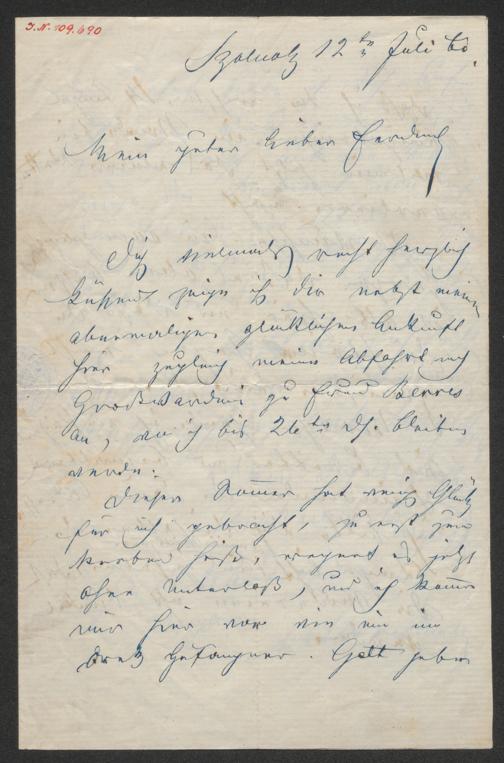 J.N. 109.690
Szolnok 12ten Juli 60.
Mein guter lieber Ferdinand
Dich vielmals recht herzlich
küssend zeige ich dir nebst meiner
abermaligen glücklichen Ankunft
hier zugleich meine Abfahrt nach
Großwardein zu Freund Berres
an, wo ich bis 26ten dß. bleiben
werde.
Dieser Sommer hat wenig Glück
für mich gebracht, zu erst zum
sterben heiß, regnet es jetzt
ohne Unterlaß, und ich komme
mir hier vor wie ein im
Dreck Gefangener. Gott gebe